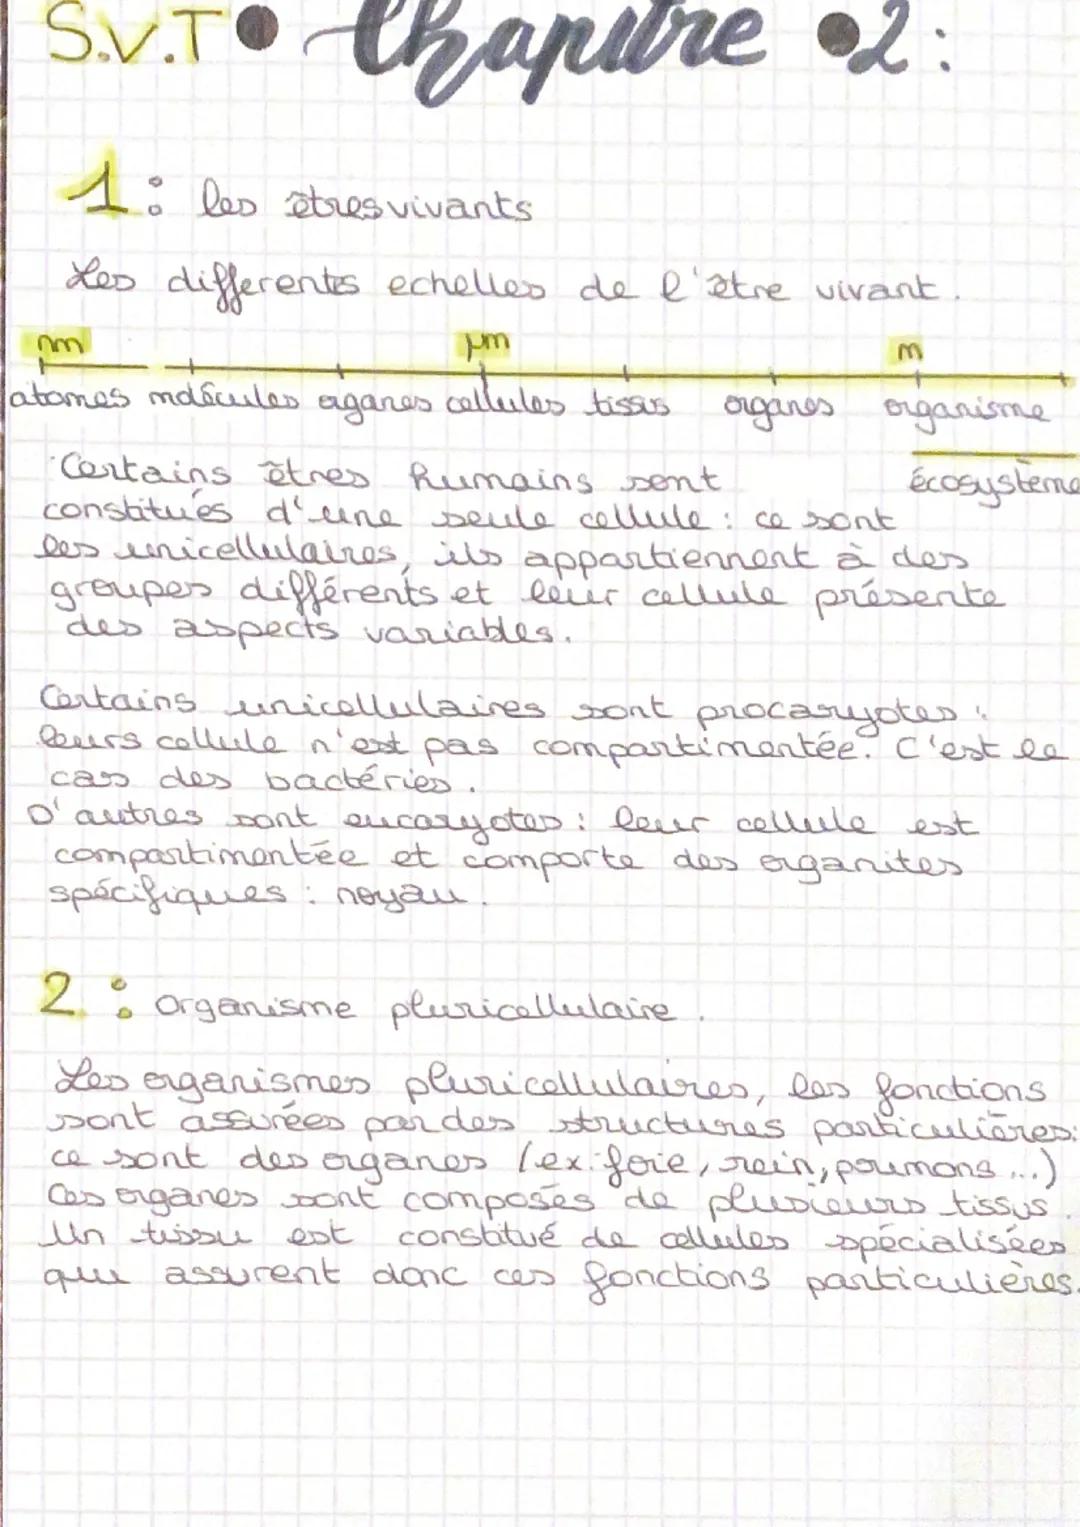 S.V.T • Chapitre • 2 :
1 : les êtres vivants
Les differents echelles de l'être vivant.
nm µm m
atomes molécules organes cellules tissus organes organisme
écosystème
Certains êtres humains sont
constitués d'une seule cellule : ce sont
les unicellulaires, ils appartiennent à des
groupes différents et leur cellule présente
des aspects variables.
Certains unicellulaires sont procaryotes :
leurs cellule n'est pas compartimentée. C'est le
cas des bactéries.
D'autres sont eucaryotes : leur cellule est
compartimentée et comporte des organites
spécifiques : noyau.
2 : Organisme pluricellulaire.
Les organismes pluricellulaires, les fonctions
sont assurées par des structures particulières :
ce sont des organes (ex : foie, rein, poumons ...)
Ces organes sont composés de plusieurs tissus.
Un tissu est constitué de cellules spécialisées
qui assurent donc ces fonctions particulières.